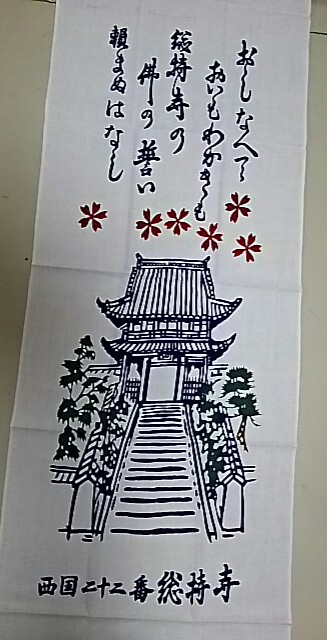 おしなへて
おいもわかきも
総持寺の
佛の誓い
頼まぬはなし
西国二十二番総持寺